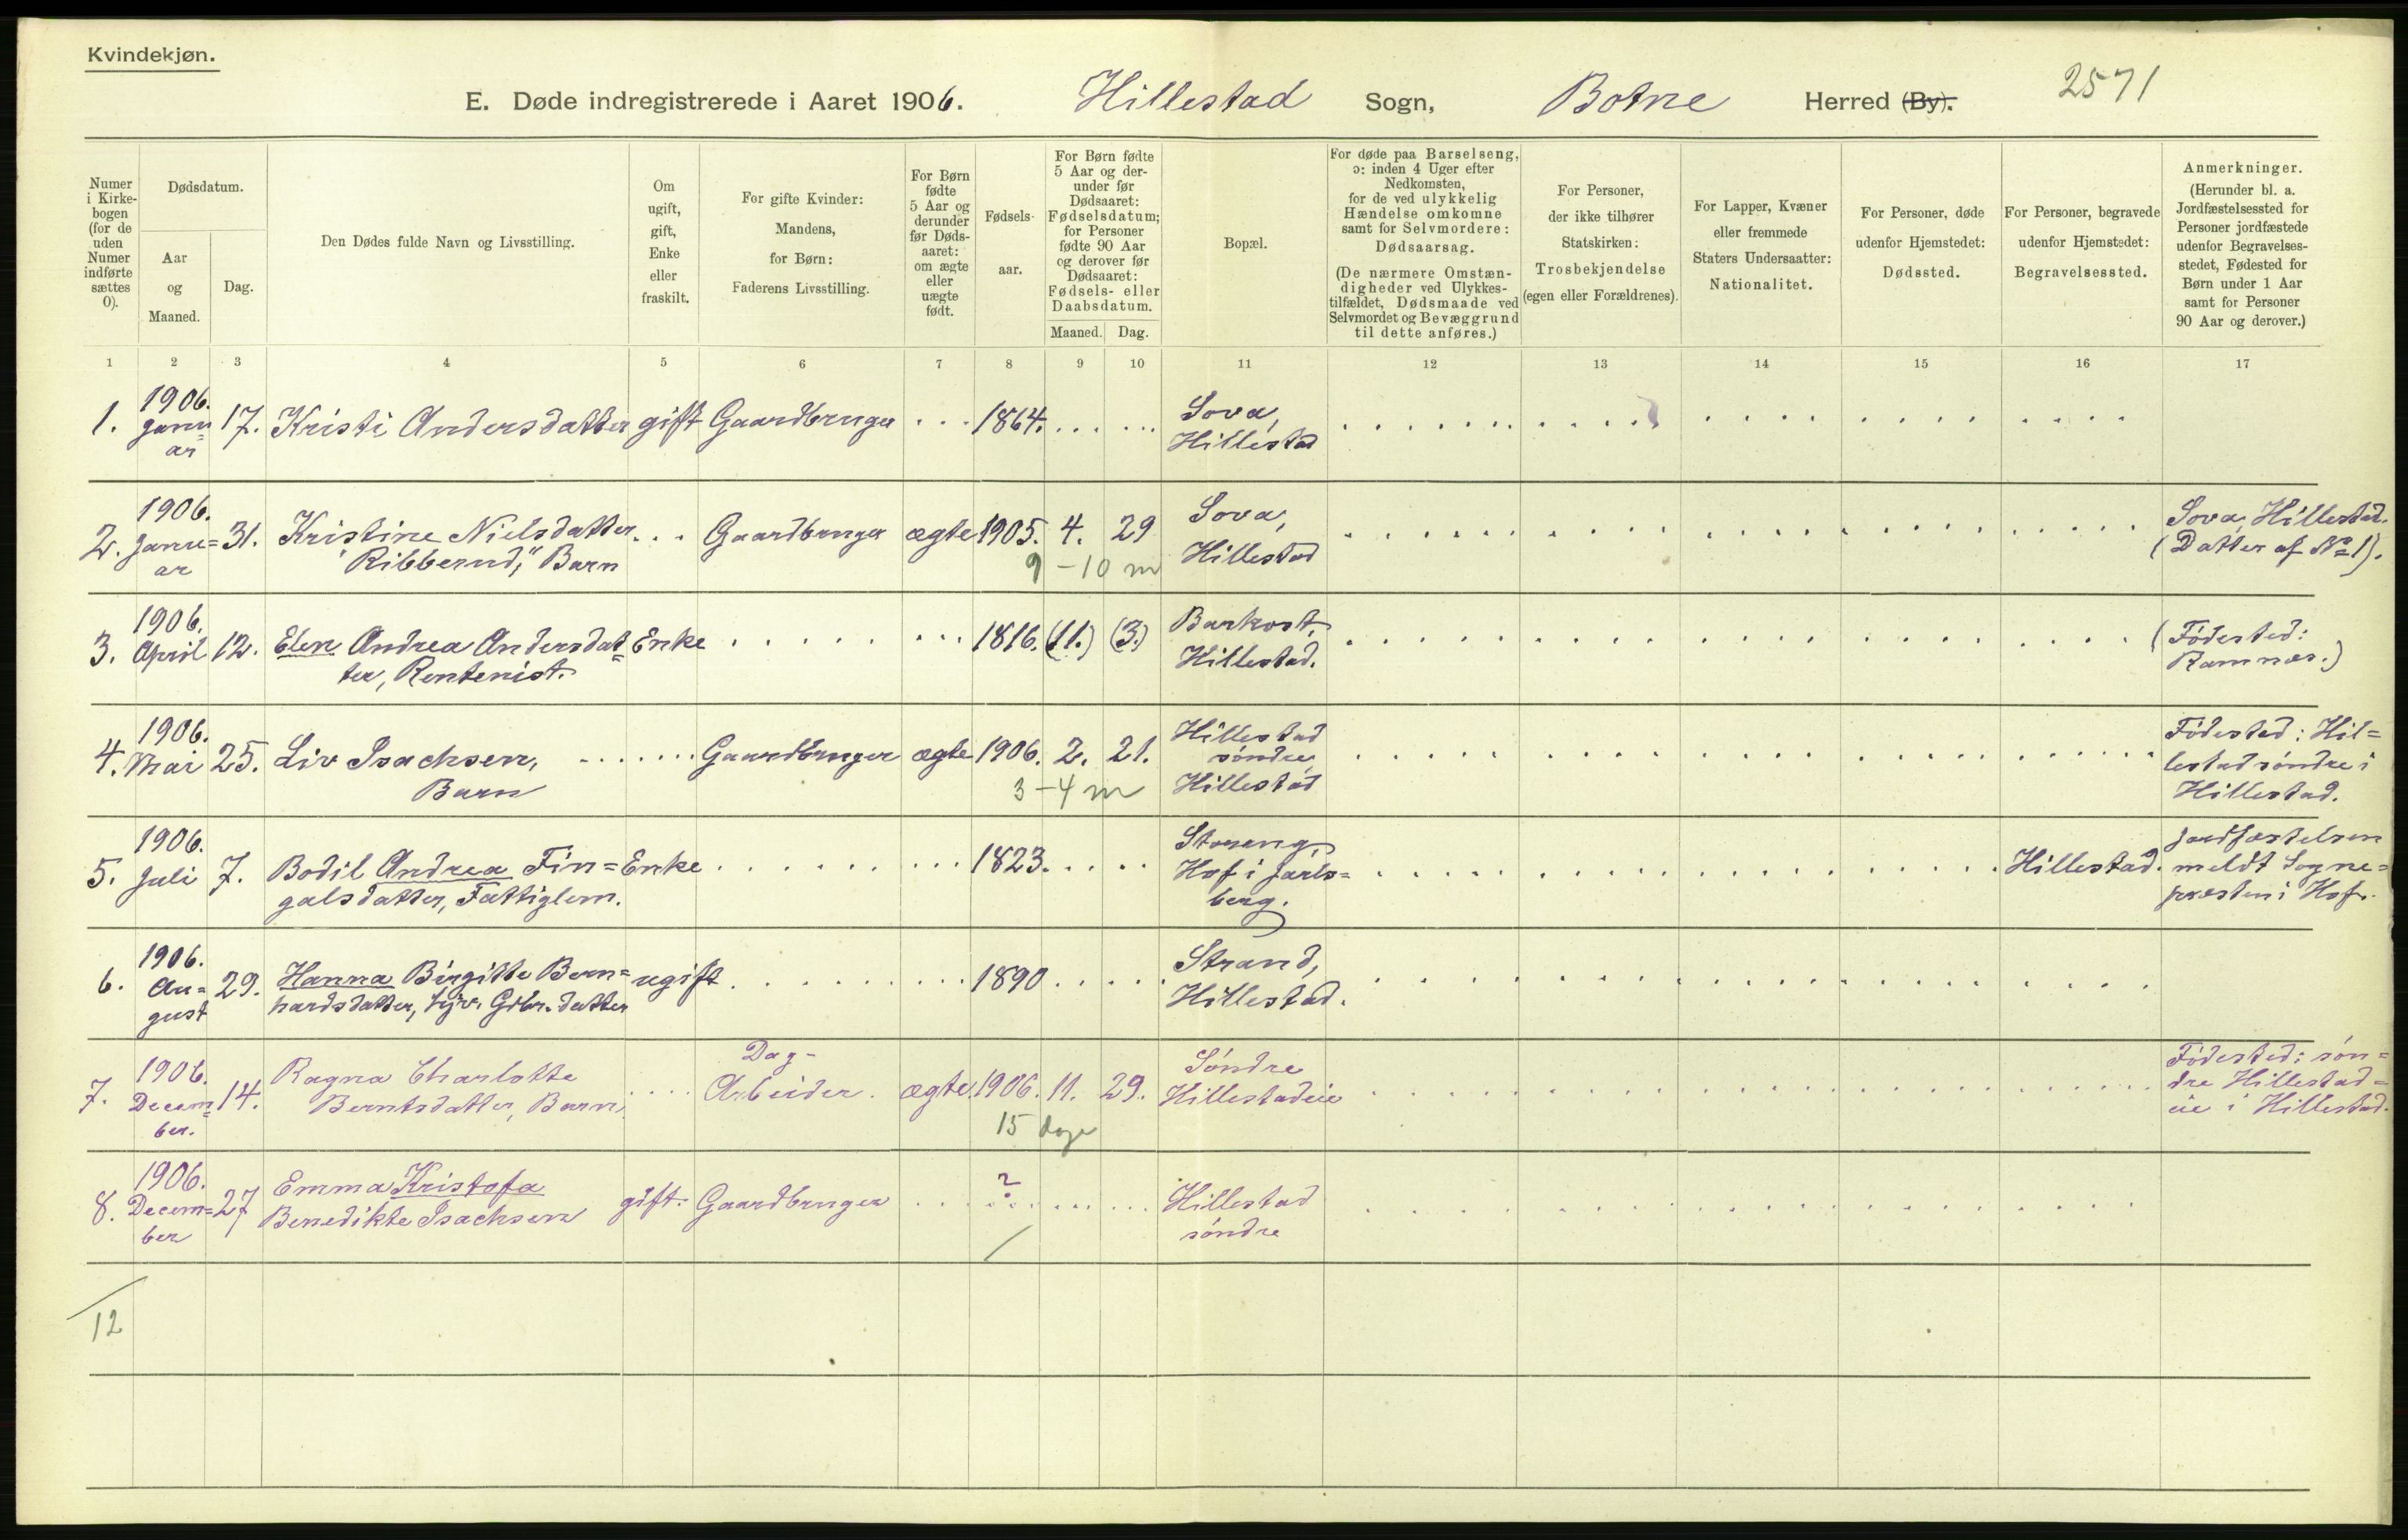 Kvindekjøn.
E. Døde indregistrerede i Aaret 1906. Hillestad Sogn, Botne Herred (By). 2571
Numer i Kirkebogen (for de uden Numer indførte sættes 0).
Dødsdatum.
Aar og Maaned.
Dag.
Den Dødes fulde Navn og Livsstilling.
Om ugift, gift, Enke eller fraskilt.
For gifte Kvinder: Mandens, for Børn: Faderens Livsstilling.
For Børn fødte 5 Aar og derunder før Dødsaaret: om ægte eller uægte født.
Fødselsaar.
For Børn fødte 5 Aar og derunder før Dødsaaret: Fødselsdatum; for Personer fødte 90 Aar og derover før Dødsaaret: Fødsels- eller Daabsdatum.
Maaned. Dag.
Bopæl.
For døde paa Barselseng, ɔ: inden 4 Uger efter Nedkomsten, for de ved ulykkelig Hændelse omkomne samt for Selvmordere: Dødsaarsag.
(De nærmere Omstændigheder ved Ulykkestilfældet, Dødsmaade ved Selvmordet og Bevæggrund til dette anføres.)
For Personer, der ikke tilhører Statskirken: Trosbekjendelse (egen eller Forældrenes).
For Lapper, Kvæner eller fremmede Staters Undersaatter: Nationalitet.
For Personer, døde udenfor Hjemstedet: Dødssted.
For Personer, begravede udenfor Hjemstedet: Begravelsessted.
Anmerkninger.
(Herunder bl. a. Jordfæstelsessted for Personer jordfæstede udenfor Begravelsesstedet, Fødested for Børn under 1 Aar samt for Personer 90 Aar og derover.)
1 2 3 4 5 6 7 8 9 10 11 12 13 14 15 16 17
1906.
1. Janu= 17. Kristi Andersdatter gift Gaardbruger 1864. Sova,
ar Hillestad
1906.
2. Janu= 31. Kristine Nielsdatter Gaardbruger ægte 1905. 4. 29 Sova, Sova, Hillestad.
ar "Ribberud," Barn 9 - 10 m Hillestad (Datter af No 1).
1906.
3. April 12. Elen Andrea Andersdat= Enke 1816. (11.) (3.) Barkost, (Fødested:
ter, Rentenist. Hillestad. Ramnæs.)
1906.
4. Mai 25. Liv Isachsen, Gaardbruger ægte 1906. 2. 21. Hillestad søndre, Fødested: Hil=
Barn 3-4 m Hillestad lestad søndre i
Hillestad.
1906.
5. Juli 7. Bodil Andrea Fin= Enke 1823. Storeng, Hillestad. Jordfæstelsen
galsdatter, Fattiglem. Hof i Jarls= meldt Sogne=
berg. præsten i Hof.
1906.
6. Au= 29. Hanna Birgitte Bern= ugift 1890 Strand,
gust hardsdatter, hjv. Gdbr. datter Hillestad.
1906.
7. Decem= 14. Ragna Charlotte Dag- Søndre Fødested: søn=
ber. Berntsdatter, Barn Arbeider. ægte 1906. 11. 29. Hillestadeie dre Hillestad=
15 dage eie i Hillestad.
1906.
8. Decem= 27 Emma Kristofa gift. Gaardbruger ? Hillestad
ber Benedikte Isachsen søndre
12